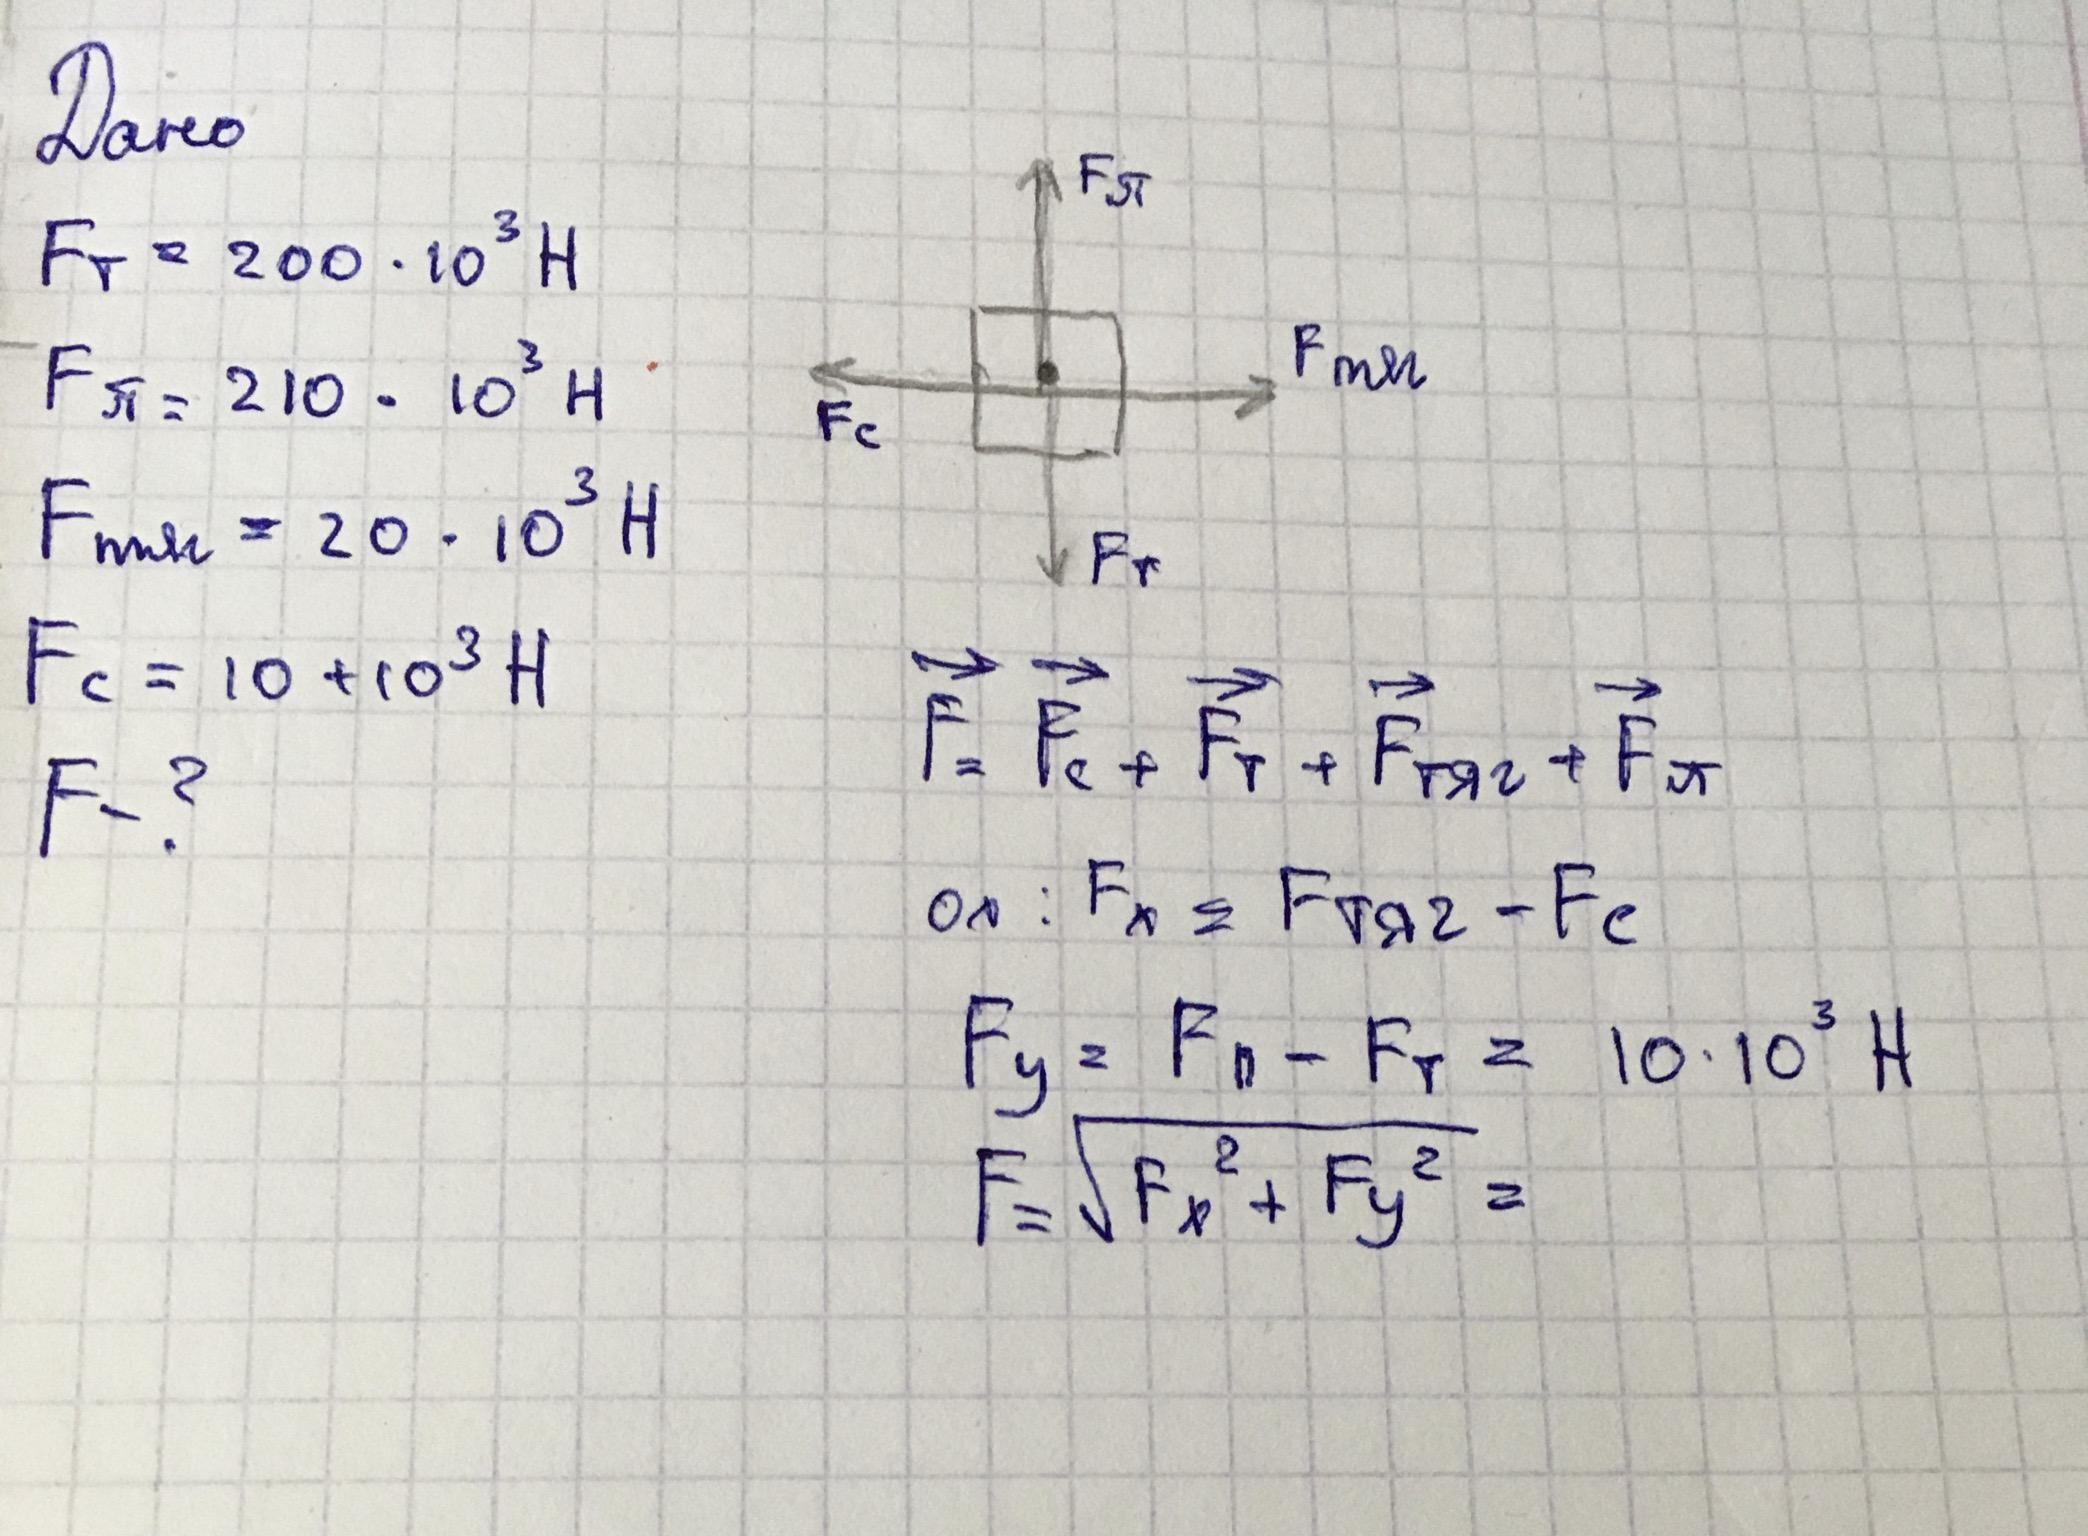 Дано
Fт = 200 · 10³ Н
Fп = 210 · 10³ Н
Fтяг = 20 · 10³ Н
Fс = 10 + 10³ Н
F - ?
Fп
Fтяг
Fс
Fт
F⃗ = F⃗с + F⃗т + F⃗тяг + F⃗п
ох : Fx = Fтяг - Fс
Fy = Fп - Fт = 10 · 10³ Н
F = √(Fx² + Fy²) =